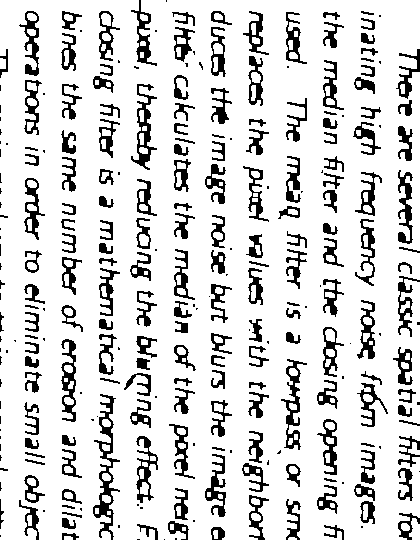 There are several classic spatial filters for
inating high frequency noise from images.
the median filter and the closing opening fi
used. The mean filter is a lowpass or smo
replaces the pixel values with the neighbor
duces the image noise but blurs the image e
filter calculates the median of the pixel neig
pixel, thereby reducing the blurring effect. F
closing filter is a mathematical morphologic
bines the same number of erosion and dilat
operations in order to eliminate small objec